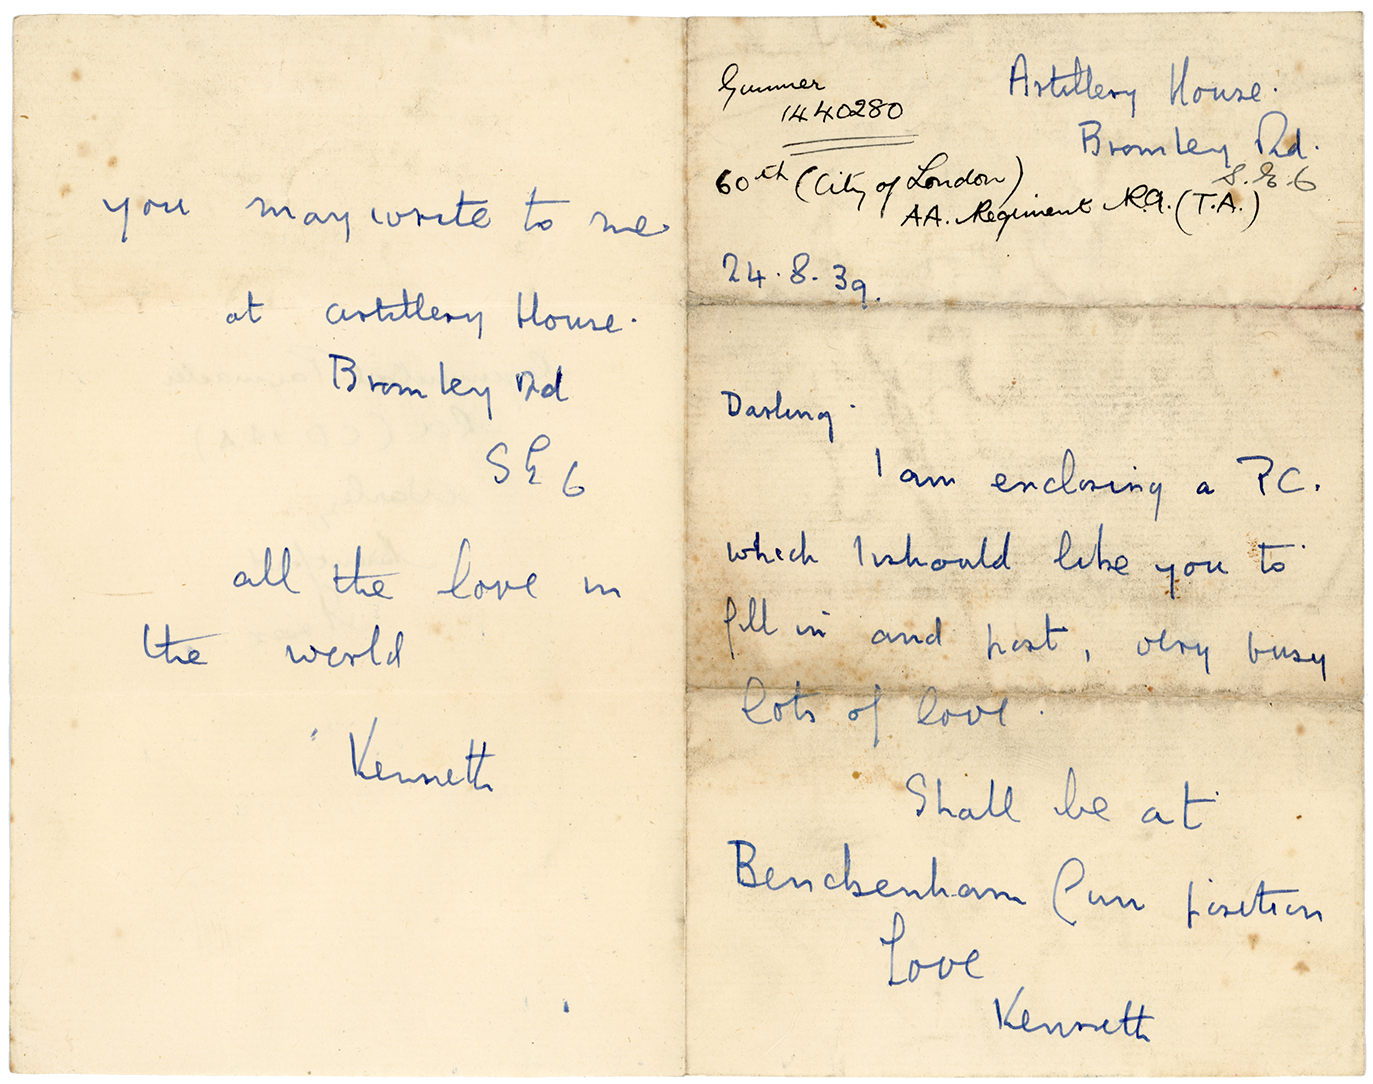 Gunner
1440280
Artillery House.
Bromley Rd.
S.E.6
60th (City of London)
AA. Regiment R.A. (T.A.)
24.8.39.
Darling.
I am enclosing a PC.
which I should like you to
fill in and post, very busy
lots of love.
Shall be at
Benckenham Gun position
Love
Kenneth
you may write to me
at Artillery House.
Bromley Rd
SE6
all the love in
the world
Kenneth